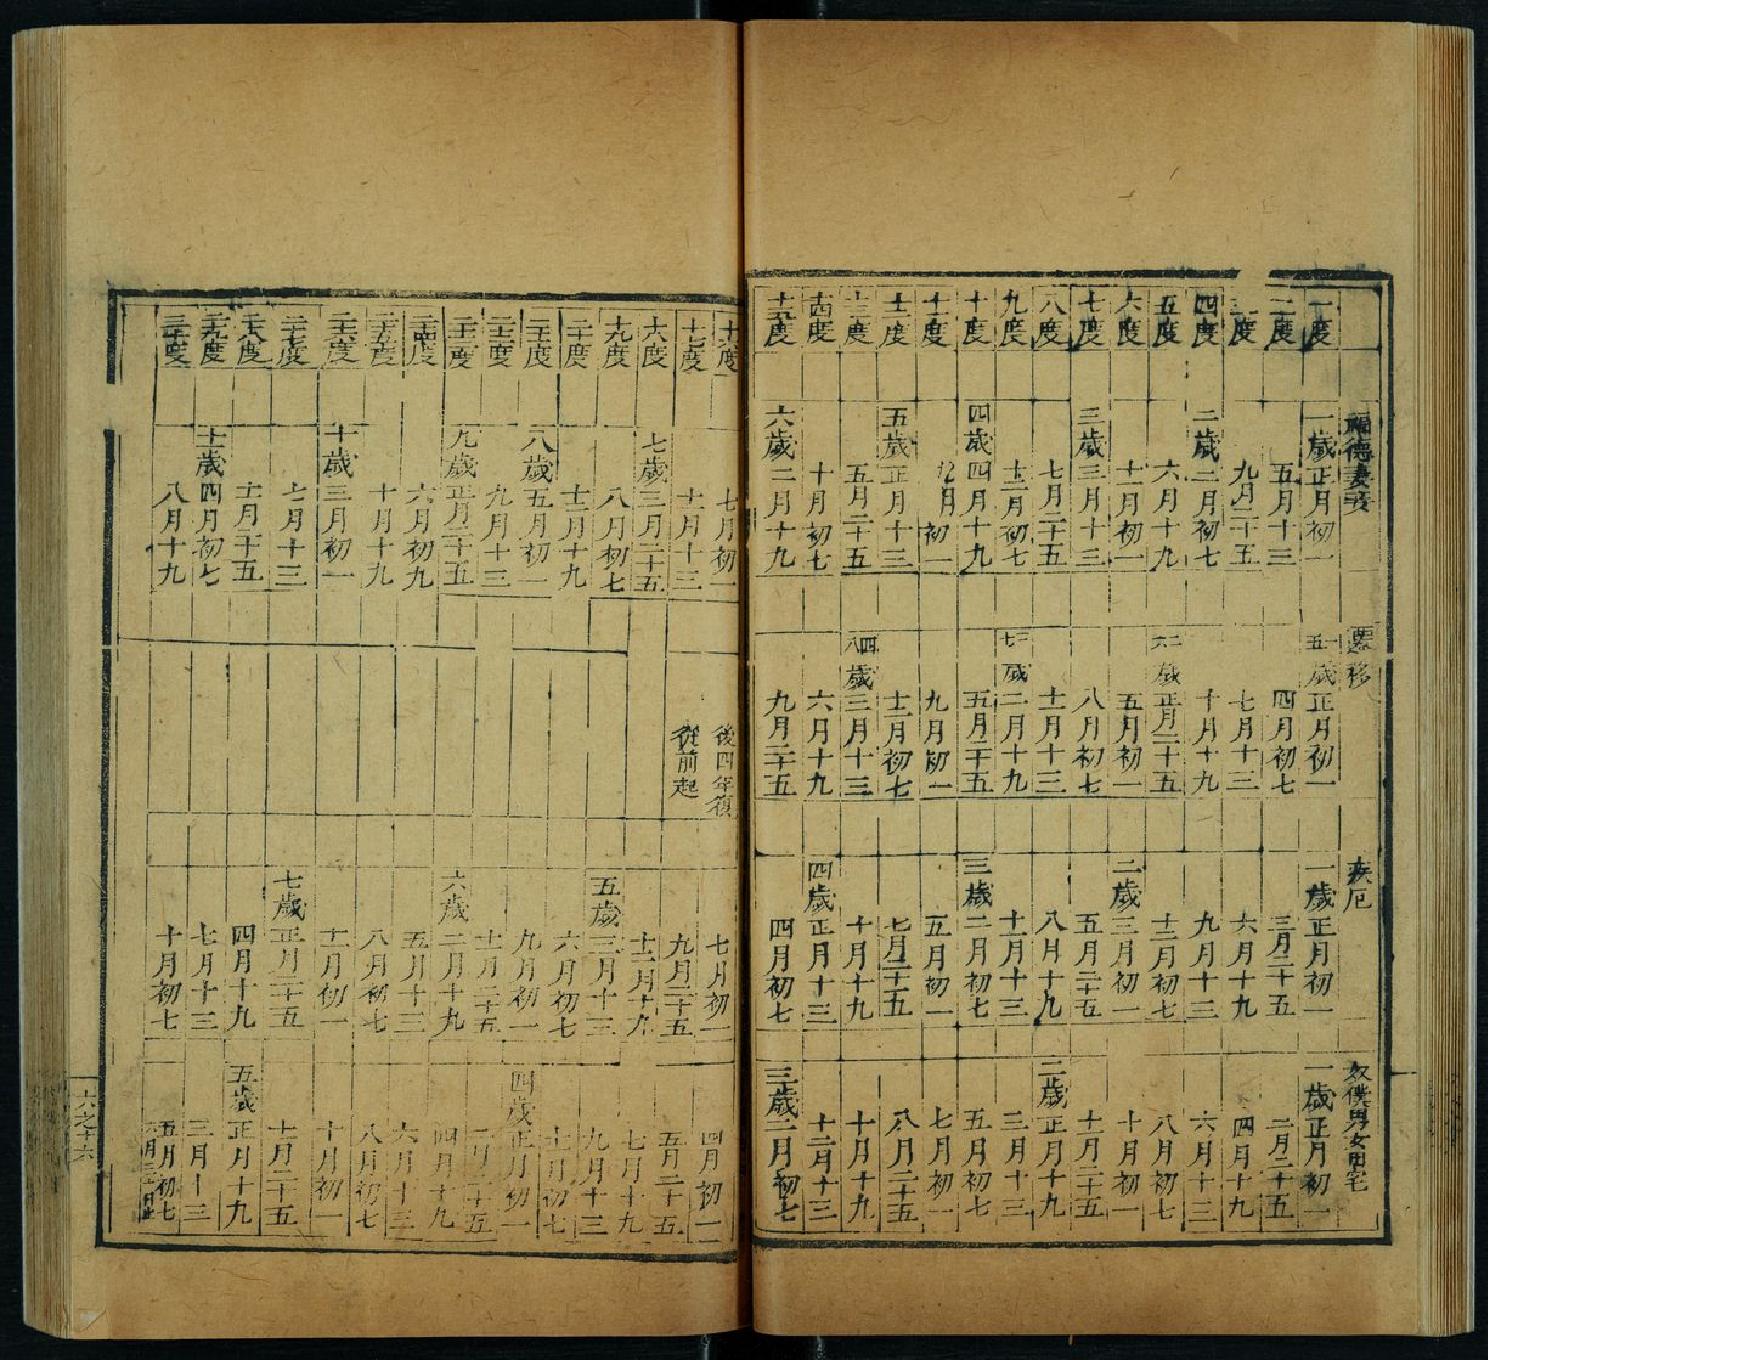 福德妻妾 遷移 疾厄 奴僕男女田宅
一度 一歲正月初一 五一歲正月初一 一歲正月初一 一歲正月初一
二度 五月十三 四月初七 三月二十五 二月二十五
三度 九月二十五 七月十三 六月十九 四月十九
四度 二歲二月初七 十月十九 九月十三 六月十三
五度 六月十九 歲正月二十五 十二月初七 八月初七
六度 十一月初一 五月初一 二歲三月初一 十月初一
七度 三歲三月十三 八月初七 五月二十五 十一月二十五
八度 七月二十五 十一月十三 八月十九 二歲正月十九
九度 十二月初七 歲二月十九 十一月十三 三月十三
十度 四歲四月十九 五月二十五 三歲二月初七 五月初七
十一度 月初一 九月初一 五月初一 七月初一
十二度 五歲正月十三 十二月初七 七月二十五 八月二十五
十三度 五月二十五 八四歲三月十三 十月十九 十月十九
十四度 十月初七 六月十九 四歲正月十三 十二月十三
十五度 六歲二月十九 九月二十五 四月初七 三歲二月初七
十六度 七月初一 後四年復 七月初一 四月初一
十七度 十一月十三 從前起 九月二十五 五月二十五
十八度 七歲三月二十五 十二月十九 七月十九
十九度 八月初七 五歲三月十三 九月十三
二十度 十二月十九 六月初七 十一月初七
二十一度 八歲五月初一 九月初一 四歲正月初一
二十二度 九月十三 十一月二十五 二月二十五
二十三度 九歲正月二十五 六歲二月十九 四月十九
二十四度 六月初九 五月十三 六月十三
二十五度 十月十九 八月初七 八月初七
二十六度 十歲三月初一 十一月初一 十月初一
二十七度 七月十三 七歲正月二十五 十一月二十五
二十八度 十一月二十五 四月十九 五歲正月十九
二十九度 十一歲四月初七 七月十三 三月十三
三十度 八月十九 十月初七 五月初七
六之十六